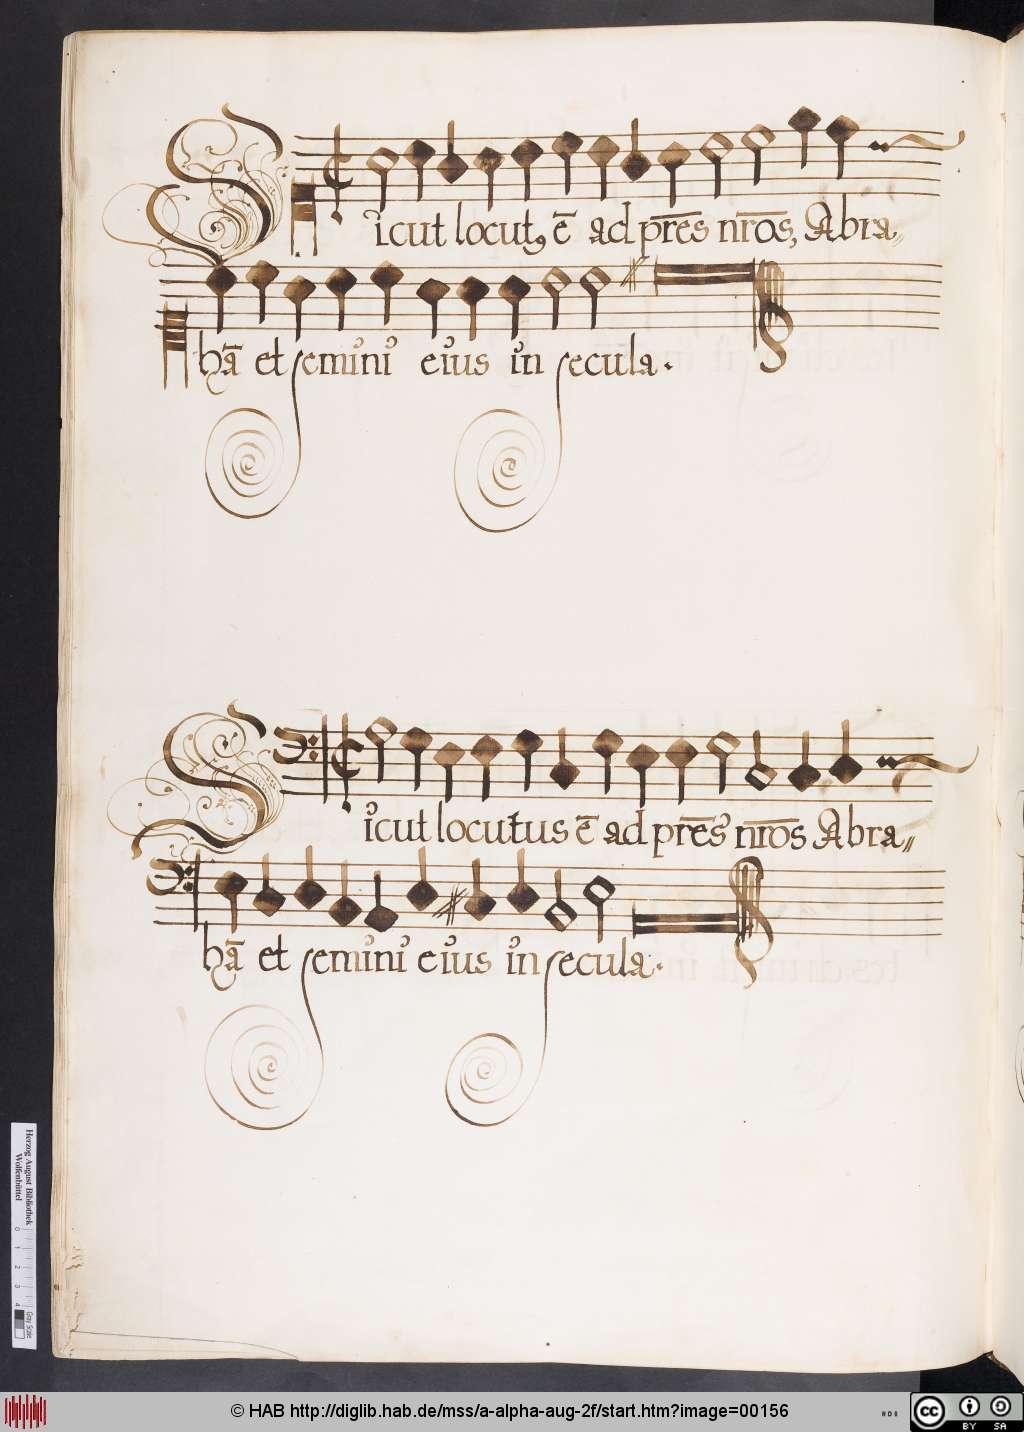 Sicut locutꝰ ē ad pr̄es nr̄os, Abra„
hā et semini eius in secula.
Sicut locutus ē ad pr̄es nr̄os Abra„
hā et semini eius in secula.
Herzog August Bibliothek
Wolfenbüttel
0 1 2 3 4
Gray Scale
© HAB http://diglib.hab.de/mss/a-alpha-aug-2f/start.htm?image=00156
cc BY SA